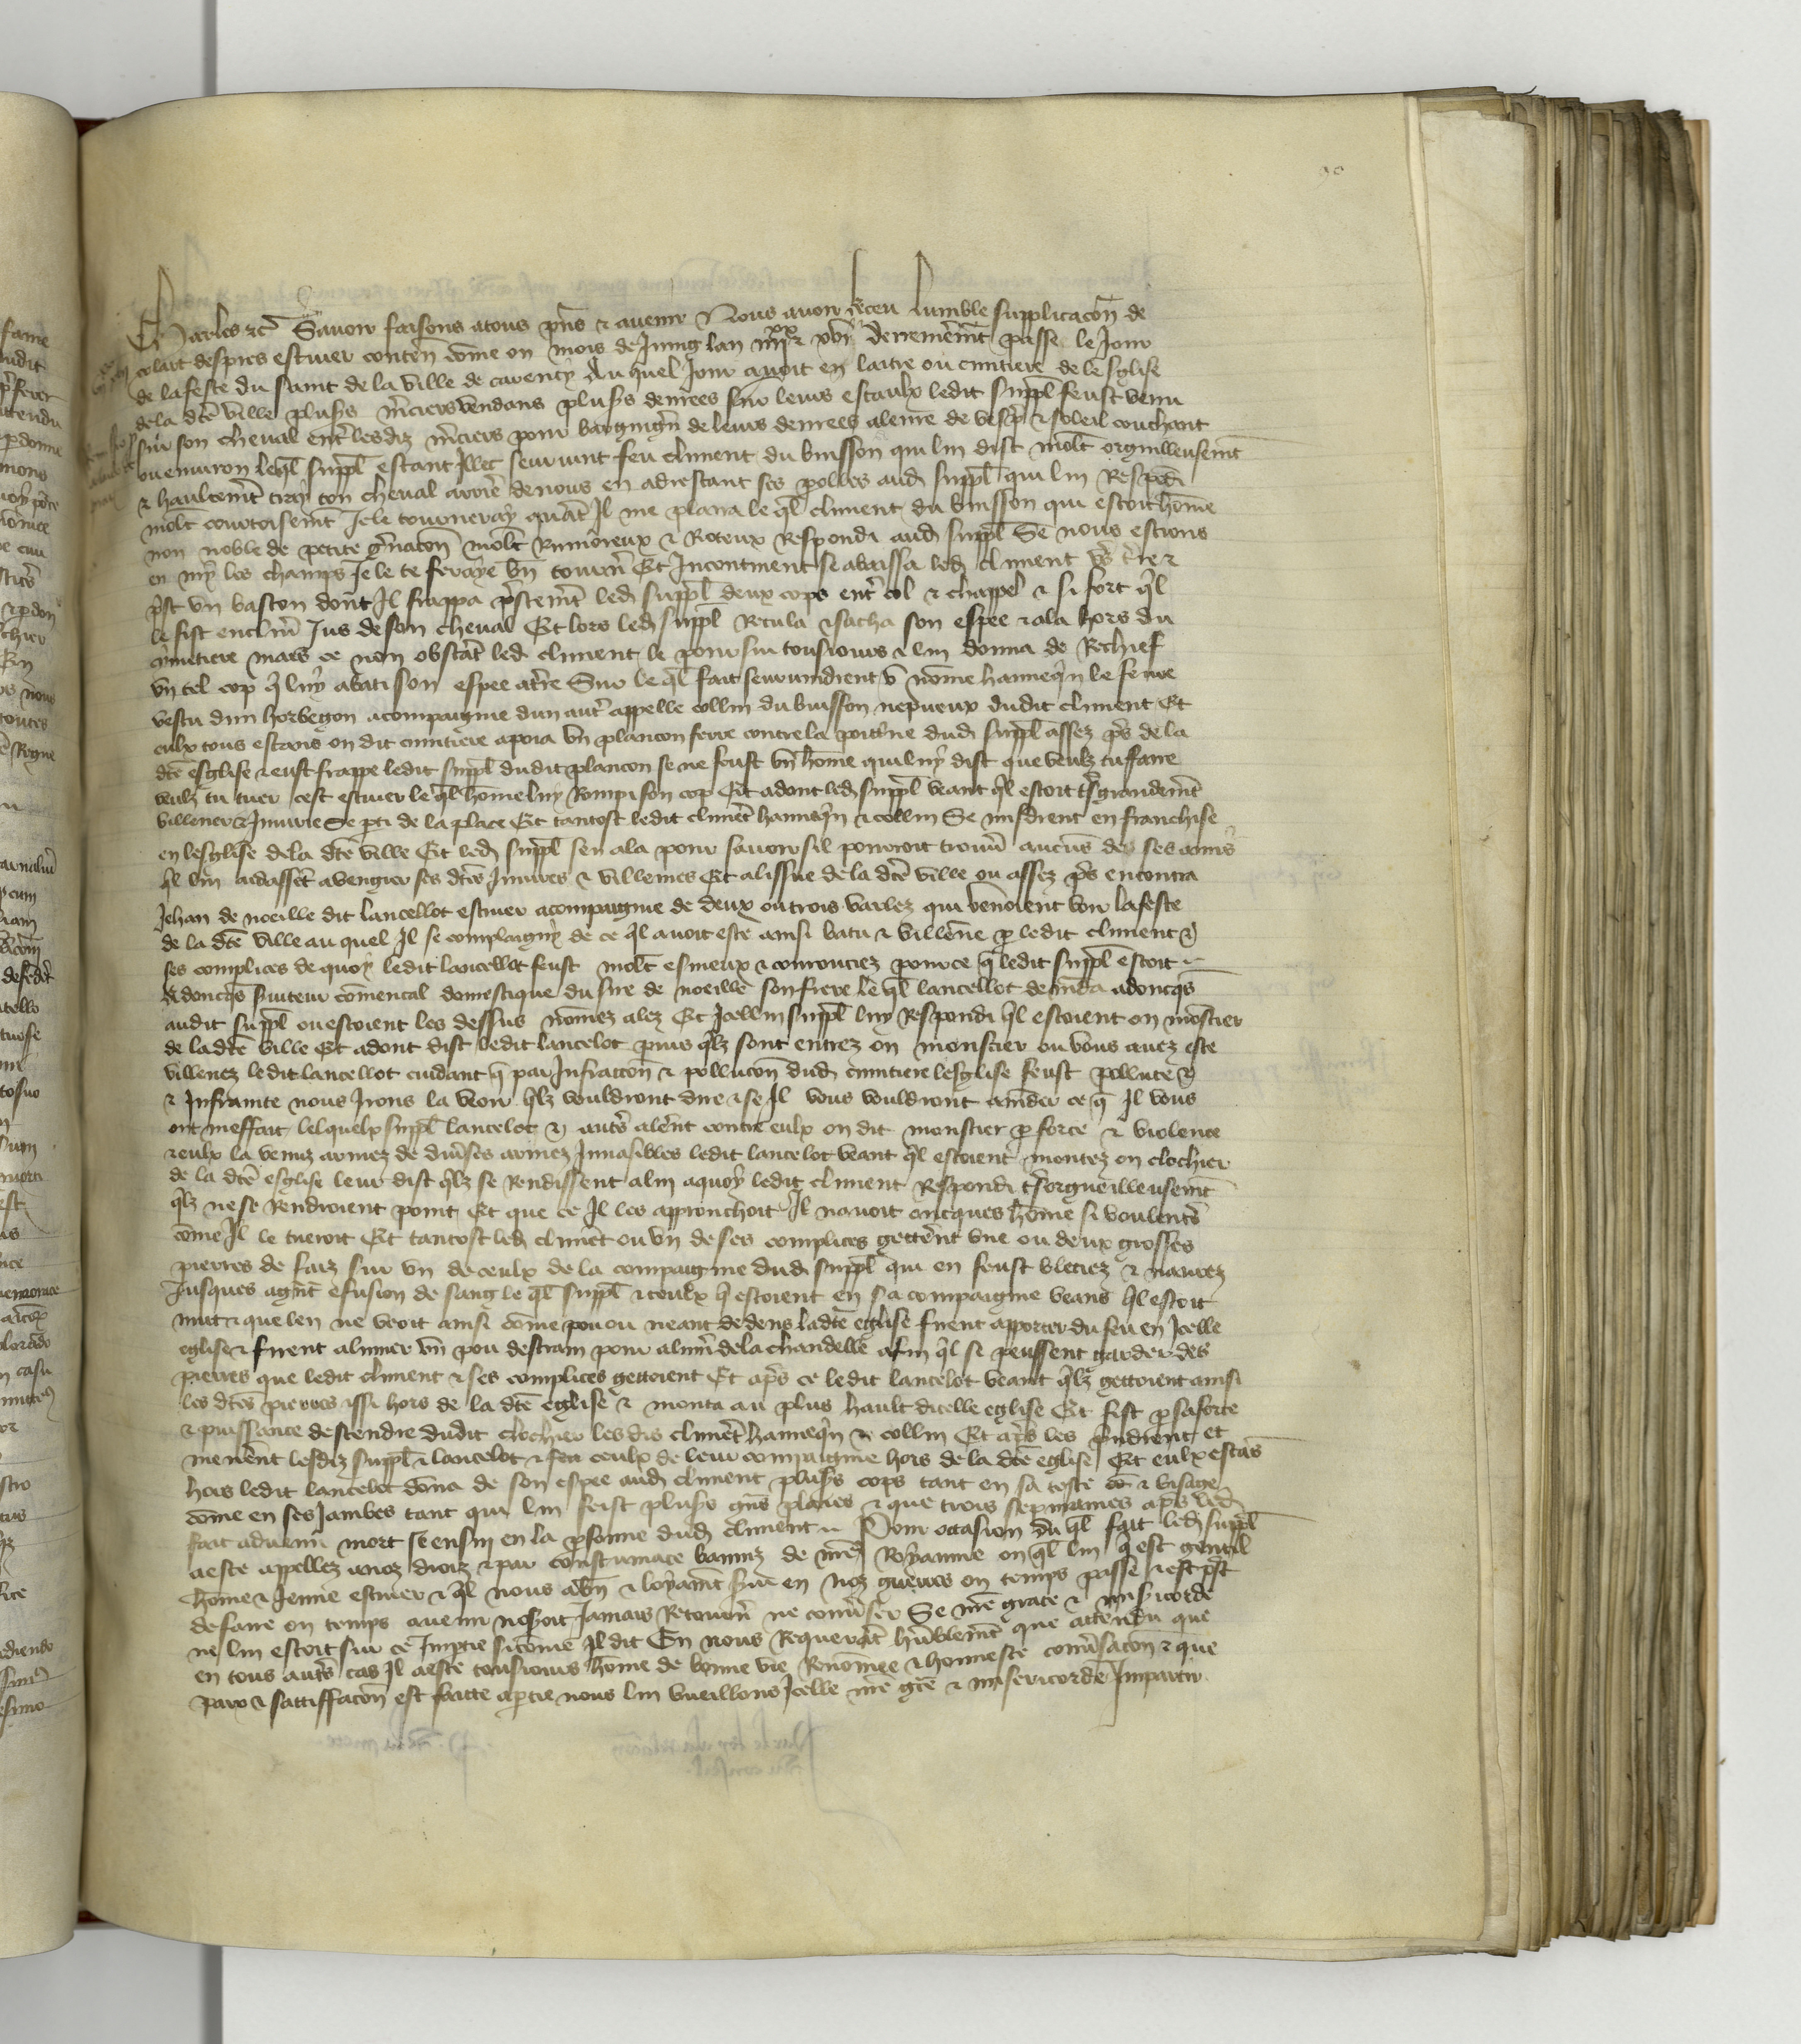 Charles etc Savoir faisons a tous pñs & avenir Nous avoir receu lumble supplicacõn de
colart despres escuier conteñ cõme ou mois de Juing lan iiijxx & xvij derrenieremẽt passe le Jour
de la feste du saint de la ville de carency Au quel Jour avoit en laitre ou cimitiere de lesglise
de la dicte ville plusrs mciers vendans plusrs denrees sur leurs estaulx ledit suppl feust venu
sur son cheval entre lesdiz mciers pour barguigñ de leurs denrees a leure de vespre & soleil couchant
ou environ leql suppl estant Illec seurvint feu climent du buisson qui lui dist molt orguilleusemt
& haultemt tray ton cheval arrie de nous en adrescant ses polles aud suppl qui lui Respõdi
molt courtoisemt Je le tourneray quãt Il me plaira le ql climent du buisson qui estoit hõme
non noble de petite gñacon molt Rumoreux & Roteux Respondi aud suppl Se nous estions
en my les champs Je le te feroye bñ tourñ Et Incontinent se abaissa led climent vs tre &
pst un baston dont Il frappa pstemt led suppl deux cops entre col & chappel & si fort ql
le fist encliñ Jus de son cheval Et lors led suppl Recula & sacha son espee & ala hors du
cymitiere mais ce non obstãt led climent le poursui tousiours & lui donna de Rechief
un tel cop ql luy abati son espee a tre Sur le ql fait seurvindrent & nõme hannequin le fevre
vestu dun horbegon acompaignie dun autre appelle collin du buisson nepveux dudit climent Et
eulx tous estans ou dit cimitiere apoia un plancon ferre contre la poitrine dud suppl assez ps de la
dce esglise & eust frappe ledit suppl dudit plancon se ne feust un hõme qui luy dist que veulz tu faire
veulz tu tuer cest escuier le ql hõme luy Rompi son cop Et adont led suppl veant ql estoit ts grandemt
villener & Injurie se pti de la place Et tantost ledit climẽt hannequin & collin Se misdrent en franchise
en lesglise de la dce ville Et led suppl sen ala pour savoir sil pourroit trouv aucuns de ses amis
ql lui aidassẽt a vengier ses dces Injures & villenies Et a lissue de la dce ville ou assez ps encontra
Jehan de noeille dit lancellot escuier acompaignie de deux ou trois varlez qui venoient voir la feste
de la dce ville au quel Il se complaigny de ce ql avoit este ainsi batu & villene p ledit climent &
ses complices de quoy ledit lancellot feust molt esmeux & courouciez pour ce q ledit suppl estoit
adoncqs suiteur cõmencal domestique du sire de noeille son frere le ql lancellot demãda adoncqs
audit suppl ou estoient les dessus nõmez alez Et Icellui suppl luy Respondi ql estoient ou moustier
de la dce ville Et adont dist ledit lancelot puis qlz sont entrez ou moustier ou vous avez este
villenez ledit lancellot cuidant q par Infraccon & pollucon dud cimitiere lesglise feust pollute &
& Infrainte nous Irons la veoir qlz vouldront dire & se Il vous vouldront amẽder ce q Il vous
ont meffait lesquelx suppl lancelot & autrs alerent contre eulx ou dit moustier p force & violence
& eulx la venuz armez de diverses armez Invasibles ledit lancelot veant ql estoient montez ou clochier
de la dce esglise leur dist qlz se rendissent a lui a quoy ledit climent Respondi ts orgueilleusemt
qlz ne se Rendroient point Et que ce Il les approuchoit Il navoit oncques hõme si voulentrs
cõme Il le tueroit Et tantost led climẽt ou un de ses complices getterent une ou deux grosses
pierres de faiz sur un de ceulx de la compaignie dud suppl qui en feust bleciez & navrez
Jusques a grñt efusion de sang le ql suppl & ceulx q estoient en sa compaignie veans ql estoit
nuit & que len ne veoit ainsi cõme pou ou neant dedens ladce eglise firent apporter du feu en Icelle
eglise & firent alumer un pou destrain pour alumer de la chandelle afin ql se peussent garder des
pierres que ledit climent & ses complices gettoient Et aps ce ledit lancelot veant qlz gettoient ainsi
les dces pierres issi hors de la dce eglise & monta au plus hault dicelle eglise Et fist p sa force
& puissance descendre dudit clochier les dis climẽt hannequin & collin Et aps les prindrent et
menerent lesdiz suppl & lancelot & ceulx de leur compaignie hors de la dce eglise Et eulx estãs
hors ledit lancelot dõna de son espee aud climent plusrs cops tant en sa teste & visage
cõme en ses Jambes tant qui lui feist plusrs grñs plaies & que trois sepmaines aps led
fait advenu mort se ensui en la psonne dud climent Pour occasion du ql fait led suppl
a este appellez a noz droiz & par contumace banniz de nre Royaume ou ql lui q est gentil
hõme & Jeune escuier & ql nous a bñ & loyaumt servi en noz guerres ou temps passe & est pst
de faire ou temps avenir noseroit Jamais Retourñ ne converser Se nre grace & misericorde
ne lui estoit sur ce Imptie si cõme Il dit En nous Requerãt humblemt que attendu que
en tous autrs cas Il a este tousiours hõme de bonne vie Renõmee & honneste convsacon & que
paix & sattiffacon est faitte a ptie nous lui vueillons Icelle nre grce & misericorde Impartir